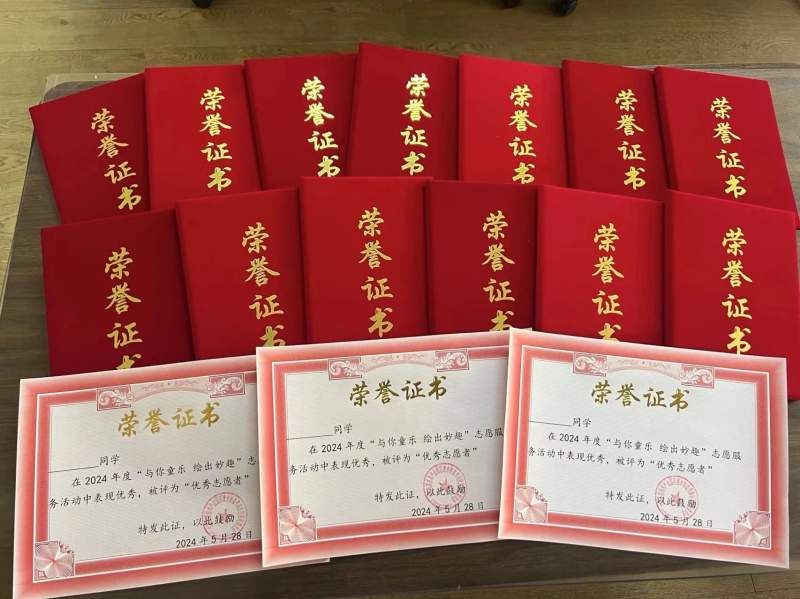 荣誉证书
荣誉证书
荣誉证书
荣誉证书
荣誉证书
荣誉证书
荣誉证书
荣誉证书
荣誉证书
荣誉证书
荣誉证书
荣誉证书
荣誉证书
荣誉证书
同学
在 2024 年度“与你童乐 绘出妙趣”志
务活动中表现优秀，被评为“优秀志愿者”
特发此证，以此鼓励
2024 年 5 月 28 日
荣誉证书
同学
在 2024 年度“与你童乐 绘出妙趣”志愿服
务活动中表现优秀，被评为“优秀志愿者”
特发此证，以此鼓励
2024 年 5 月 28 日
荣誉证书
同学
在 2024 年度“与你童乐 绘出妙趣”志愿服
务活动中表现优秀，被评为“优秀志愿者”
特发此证，以此鼓励
2024 年 5 月 28 日